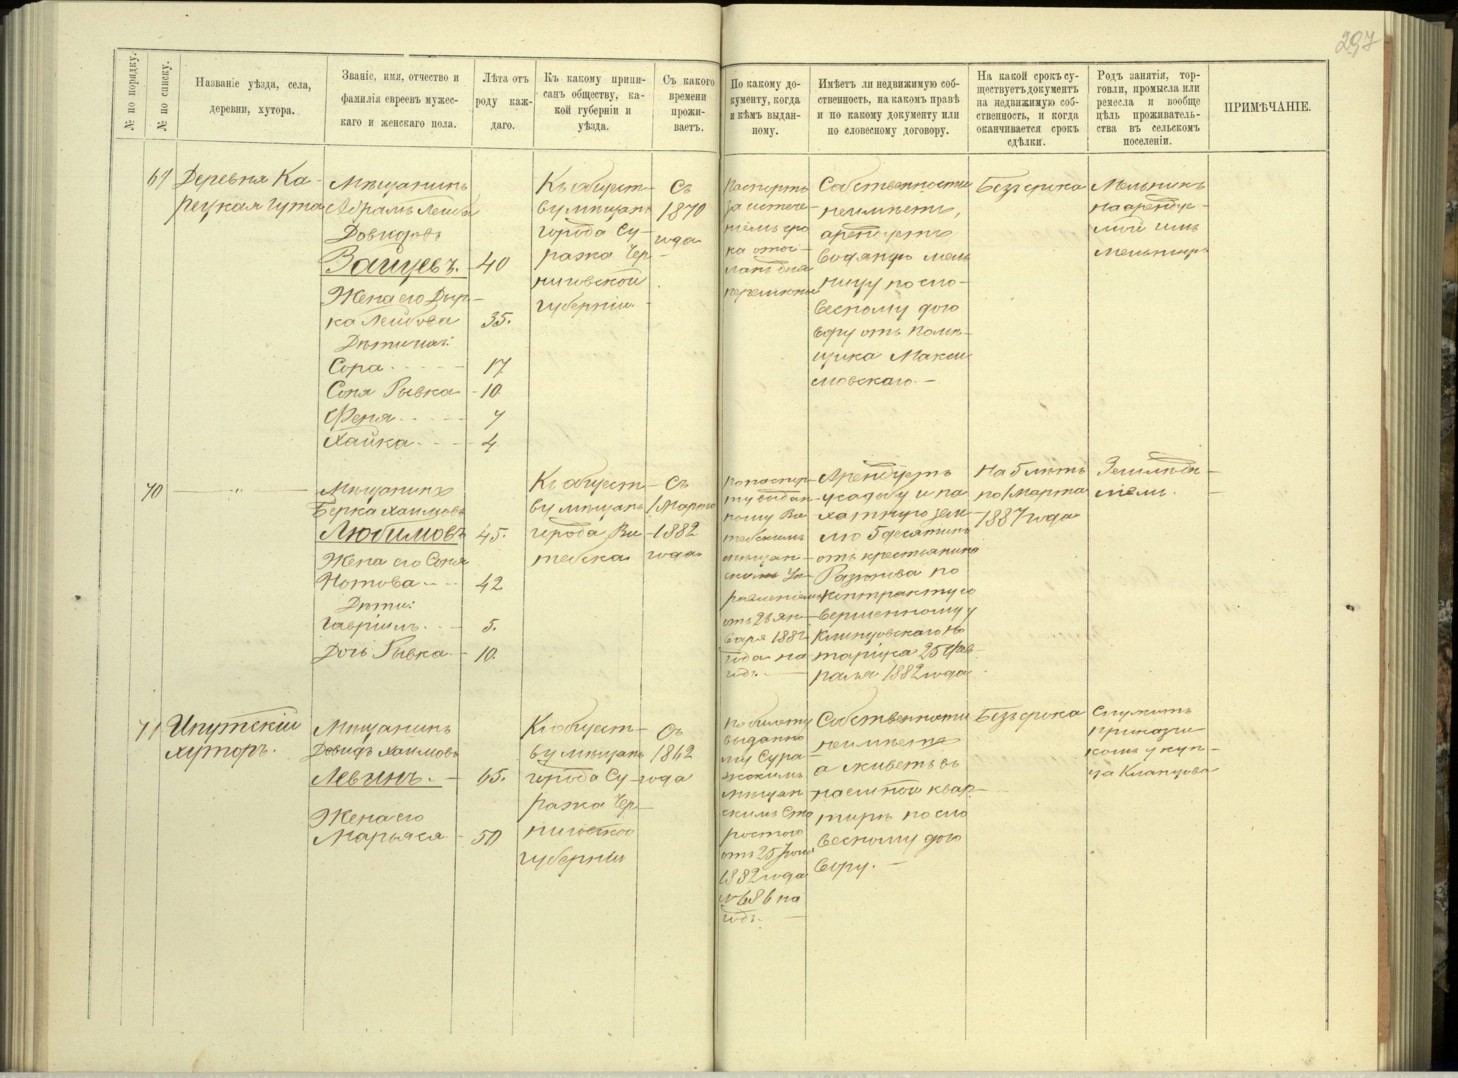 297
№ по порядку.
№ по списку.
Названіе уѣзда, села,
деревни, хутора.
Званіе, имя, отчество и
фамилія евреевъ мужес-
каго и женскаго пола.
Лѣта отъ
роду каж-
даго.
Къ какому припи-
санъ обществу, ка-
кой губерніи и
уѣзда.
Съ какого
времени
прожи-
ваетъ.
По какому до-
кументу, когда
и кѣмъ выдан-
ному.
Имѣетъ ли недвижимую соб-
ственность, на какомъ правѣ
и по какому документу или
по словесному договору.
На какой срокъ су-
ществуетъ документъ
на недвижимую соб-
ственность, и когда
оканчивается срокъ
сдѣлки.
Родъ занятія, тор-
говли, промысла или
ремесла и вообще
цѣль проживатель-
ства въ сельскомъ
поселеніи.
ПРИМѢЧАНІЕ.
Деревня Ка-
рецкая Гута
Мѣщанинъ
Абрамъ Лейба
Довидовъ
Зайцевъ. 40
Жена его Дыр-
ка Лейбова 35.
Дѣти ихъ:
Сора 17
Соня Рывка 10
Феня 7
Хайка 4
Къ общест-
ву мѣщанъ
города Су-
ража Чер-
ниговской
губерніи
Съ
1870
года
Паспортъ
за истече-
ніемъ сро
ка
Собственности
неимѣетъ,
арендуетъ
водяную мель
ницу по сло-
весному дого
вору отъ помѣ-
щика Макси
мовскаго.
Безъ срока
Мельникъ
на арендуе-
мой имъ
мельницѣ
70
"
Мѣщанинъ
Берка Хаимовъ
Любимовъ 45.
Жена его Соня
Нотова 42
Дѣти:
Гавріилъ 5.
Дочь Рывка 10.
Къ общест-
ву мѣщанъ
города Ви-
тебска
Съ
1 Марта
1882
года
По паспор-
ту выдан-
ному Ви-
тебскимъ
мѣщан-
скимъ Уп-
равленіемъ
отъ 28 Ян-
варя 1882
года на
годъ.
Арендуетъ
усадьбу и па
хатную зем-
лю 5 десятинъ
отъ крестьянина
по
контракту со
вершенному у
Клинцовскаго Но
таріуса 25 Фев-
раля 1882 года
На 5 лѣтъ
по 1 Марта
1887 года
Земледѣ-
лемъ.
71
Ипутскій
хуторъ.
Мѣщанинъ
Довидъ Хаимовъ
Левинъ. 65.
Жена его
Марьяся 50
Къ общест-
ву мѣщанъ
города Су-
ража Чер-
ниговской
губерніи
Съ
1862
года
По билету
выданно
му Сура-
жскимъ
Мѣщан
скимъ Ста
ростою
отъ 25
1882 года
№ 686 на
годъ.
Собственности
неимѣетъ
а живетъ въ
наемной квар-
тирѣ по сло
весному дого
вору.
Безъ срока
Служитъ
приказчи
комъ у куп-
ца